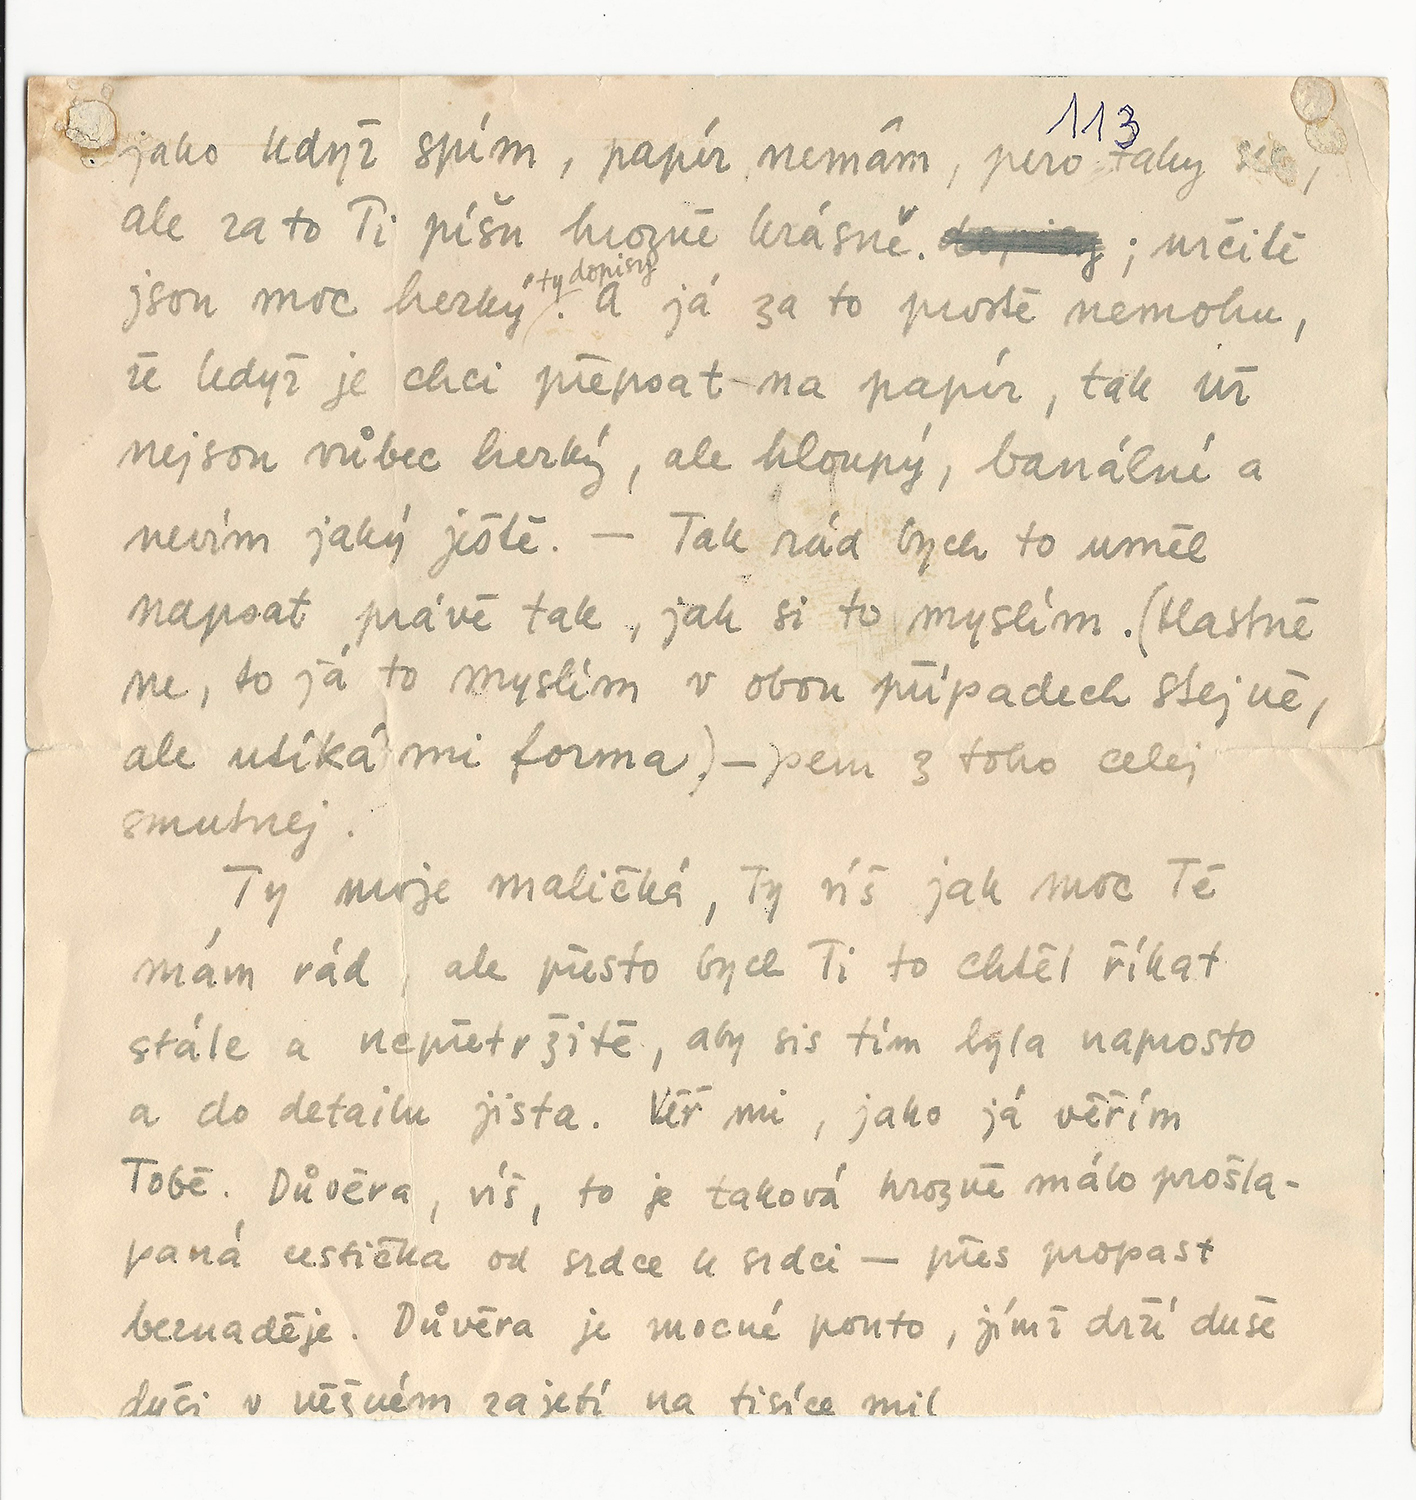 113
jako když spím, papír nemám, pero taky
ale zato Ti píšu hrozně krásně. dopisy ; určitě
ty dopisy
jsou moc herký. A já za to prostě nemohu,
že když je chci přepsat na papír, tak už
nejsou vůbec herký, ale hloupý, banální a
nevím jaký ještě. — Tak rád bych to uměl
napsat právě tak, jak si to myslím. (Vlastně
ne, to já to myslím v obou případech stejně,
ale utíká mi forma) — jsem z toho celej
smutnej.
Ty moje maličká, Ty víš jak moc Tě
mám rád, ale přesto bych Ti to chtěl říkat
stále a nepřetržitě, aby sis tím byla naprosto
a do detailu jista. Věř mi, jako já věřím
Tobě. Důvěra, víš, to je taková hrozně málo prošla-
paná cestička od srdce k srdci — přes propast
beznaděje. Důvěra je mocné pouto, jímž drží duše
duši v něžném zajetí na tisíce mil